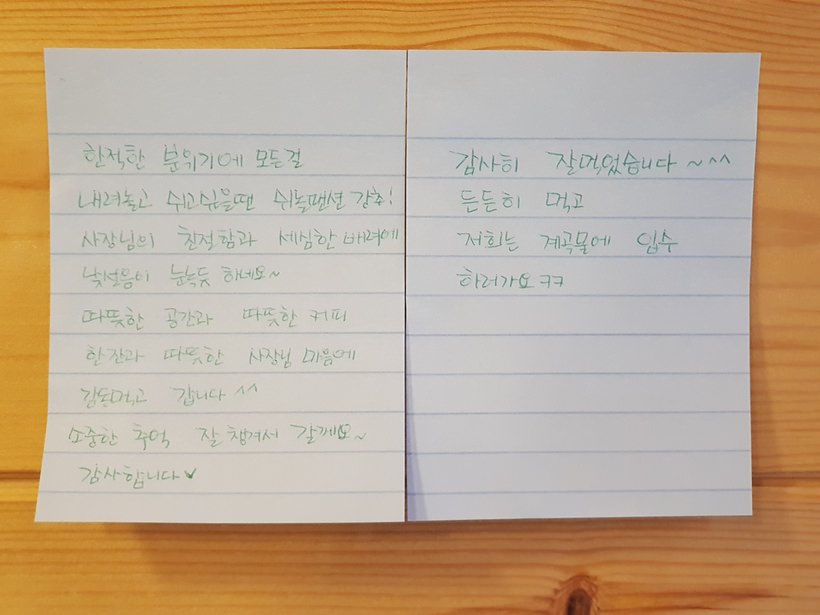 한적한 분위기에 모든걸
내려놓고 쉬고싶을땐 쉬놀팬션 강추!
사장님의 친절함과 세심한 배려에
낯설음이 눈녹듯 하네요~
따뜻한 공간과 따뜻한 커피
한잔과 따뜻한 사장님 마음에
감동먹고 갑니다 ^^
소중한 추억 잘 챙겨서 갈께요~
감사합니다♥
감사히 잘먹었습니다~^^
든든히 먹고
저희는 계곡물에 입수
하러가요ㅋㅋ